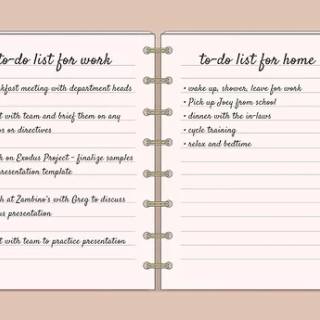 to-do list for work
kfast meeting with department heads
t with team and brief them on any
s or directives
k on Exodus Project - finalize samples
resentation template
h at Zambino's with Greg to discuss
us presentation
t with team to practice presentation
to-do list for home
• wake up, shower, leave for work
• Pick up Joey from school
• dinner with the in-laws
• cycle training
• relax and bedtime